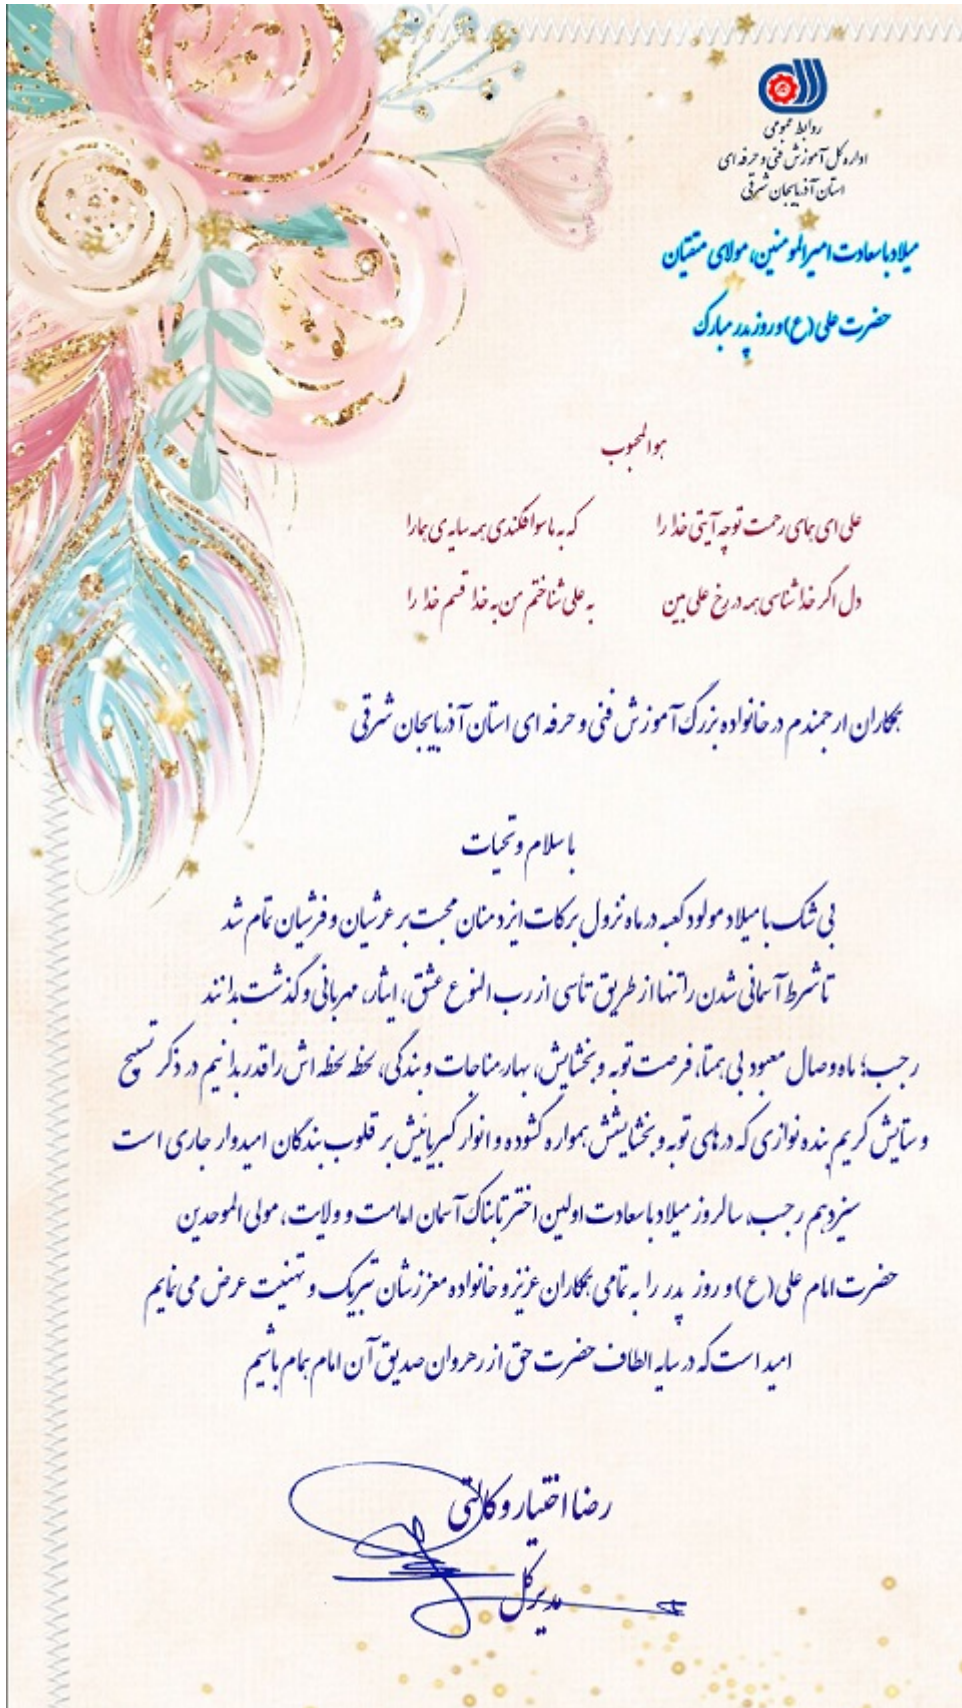 روابط عمومی
اداره کل آموزش فنی و حرفه ای
استان آذربایجان شرقی
میلاد باسعادت امیرالمومنین، مولای متقیان
حضرت علی (ع) و روز پدر مبارک
هوالمحبوب
علی ای همای رحمت تو چه آیتی خدا را که به ماسوا فکندی همه سایه ی هما را
دل اگر خداشناسی همه در رخ علی بین به علی شناختم من به خدا قسم خدا را
همکاران ارجمندم در خانواده بزرگ آموزش فنی و حرفه ای استان آذربایجان شرقی
با سلام و تحیات
بی شک با میلاد مولود کعبه در ماه نزول برکات ایزد منان محبت بر عرشیان و فرشیان تمام شد
تا شرط آسمانی شدن را تنها از طریق تأسی از رب النوع عشق، ایثار، مهربانی و گذشت بدانند
رجب؛ ماه وصال معبود بی همتا، فرصت توبه و بخشایش، بهار مناجات و بندگی، لحظه لحظه اش را قدر بدانیم در ذکر تسبیح
و ستایش کریم بنده نوازی که درهای توبه و بخشایشش همواره گشوده و انوار کبریائیش بر قلوب بندگان امیدوار جاری است
سیزدهم رجب، سالروز میلاد باسعادت اولین اختر تابناک آسمان امامت و ولایت، مولی الموحدین
حضرت امام علی (ع) و روز پدر را به تمامی همکاران عزیز و خانواده معززشان تبریک و تهنیت عرض می نمایم
امید است که در سایه الطاف حضرت حق از رهروان صدیق آن امام همام باشیم
رضا اختیار وکالتی
مدیرکل